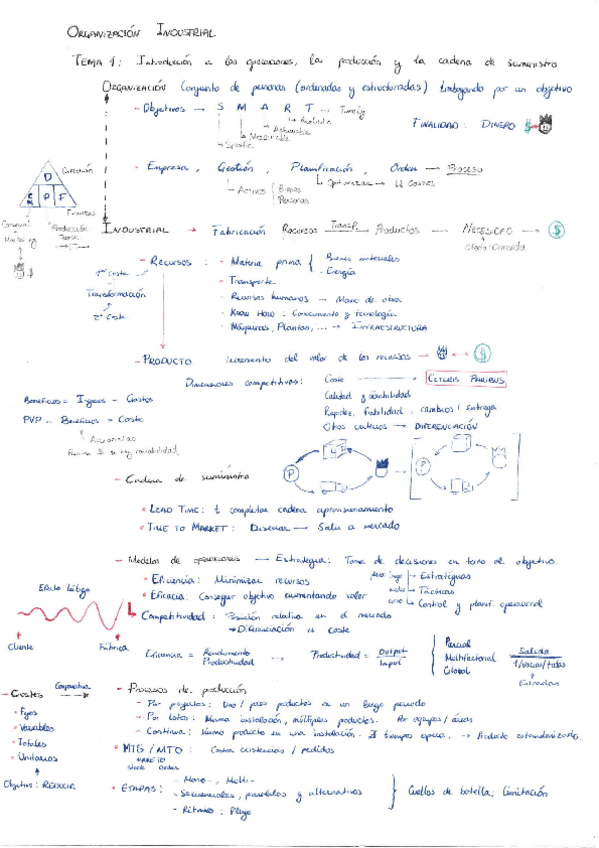 ORGANIZACIÓN INDUSTRIAL
TEMA 1: Introducción a las operaciones, la producción y la cadena de suministro
ORGANIZACIÓN Conjunto de personas (ordenadas y estructuradas) trabajando por un objetivo
- Objetivos → S M A R T → Timely
Realista
Achievable
Measurable
Specific
FINALIDAD: DINERO $
- Empresa, Gestión, Planificación, Orden → Proceso
→ Activos { Bienes
Personas
↳ Optimizar → ↓↓ COSTES
Dirección
D
P F
Finanzas
Comercial
Marketing
Producción
INDUSTRIAL → Fabricación Recursos Transf. → Productos → NECESIDAD → $
Oferta/Demanda
- Recursos : - Materia prima { Bienes materiales
Energía
- Transporte
- Recursos humanos → Mano de obra
- Know How : Conocimiento y tecnología
- Máquinas, Plantas, ... → INFRAESTRUCTURA
1er Coste
Transformación
2º Coste
- PRODUCTO Incremento del valor de los recursos → $
Dimensiones competitivas: Coste → CETERIS PARIBUS
Calidad y
Rapidez, fiabilidad, cambios / entrega
Otros criterios → DIFERENCIACIÓN
Beneficios = Ingresos - Gastos
PVP - Beneficios = Coste
Accionistas
si hay rentabilidad
P
?
- Cadena de suministro
• LEAD TIME: t completar cadena aprovisionamiento
• TIME TO MARKET: Diseñar → Salir a mercado
- Modelos de operaciones → Estrategia: Toma de decisiones en torno al objetivo.
• Eficiencia: Minimizar recursos
• Eficacia: Conseguir objetivo aumentando valor
largo → Estratégicas
medio → Tácticas
corto → Control y planif. operacional
Efecto látigo
Cliente
Fábrica
Competitividad: Posición relativa en el mercado
→ Diferenciación vs coste
Eficiencia = Rendimiento / Productividad → Productividad = Output / Input { Parcial
Multifactorial
Global
Salida
1/varias/todas
Entradas
- Costes Comparativa → - Procesos de producción
• Fijos
• Variables
• Totales
• Unitarios
Objetivo: REDUCIR
- Por proyectos: Uno / pocos productos en un largo periodo
- Por lotes: Misma instalación, múltiples productos. Por equipos / áreas
- Continua: Mismo producto en una instalación. ∄ tiempos espera. → Producto estandarizado.
• MTS / MTO: Contra existencias / pedidos
MAKE TO
Stock Order
• ETAPAS: - Mono-, Multi-
- Secuenciales, paralelas y alternativas
- Ritmos: Flujo
} Cuellos de botella; Limitación